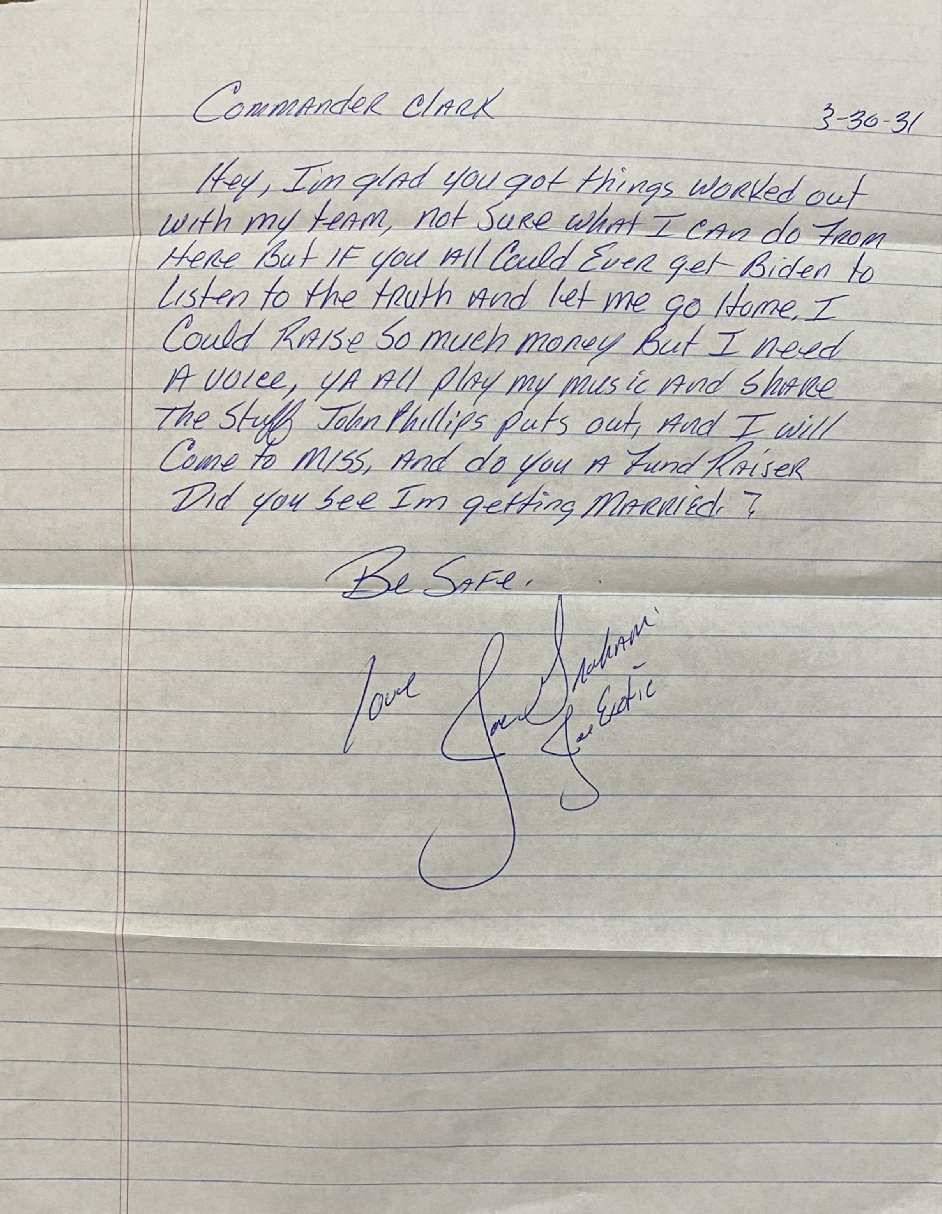 Commander Clark
3-30-31
Hey, I'm glad you got things worked out
with my team, not sure what I can do From
Here But IF you All Could Ever get Biden to
Listen to the truth And let me go Home, I
Could Raise So much money But I need
A voice, ya All play my music And Share
The Stuff John Phillips puts out, And I will
Come to Miss, And do you A Fund Raiser
Did you See I'm getting Married. ?
Be Safe.
love Joe Graham
Joe Exotic